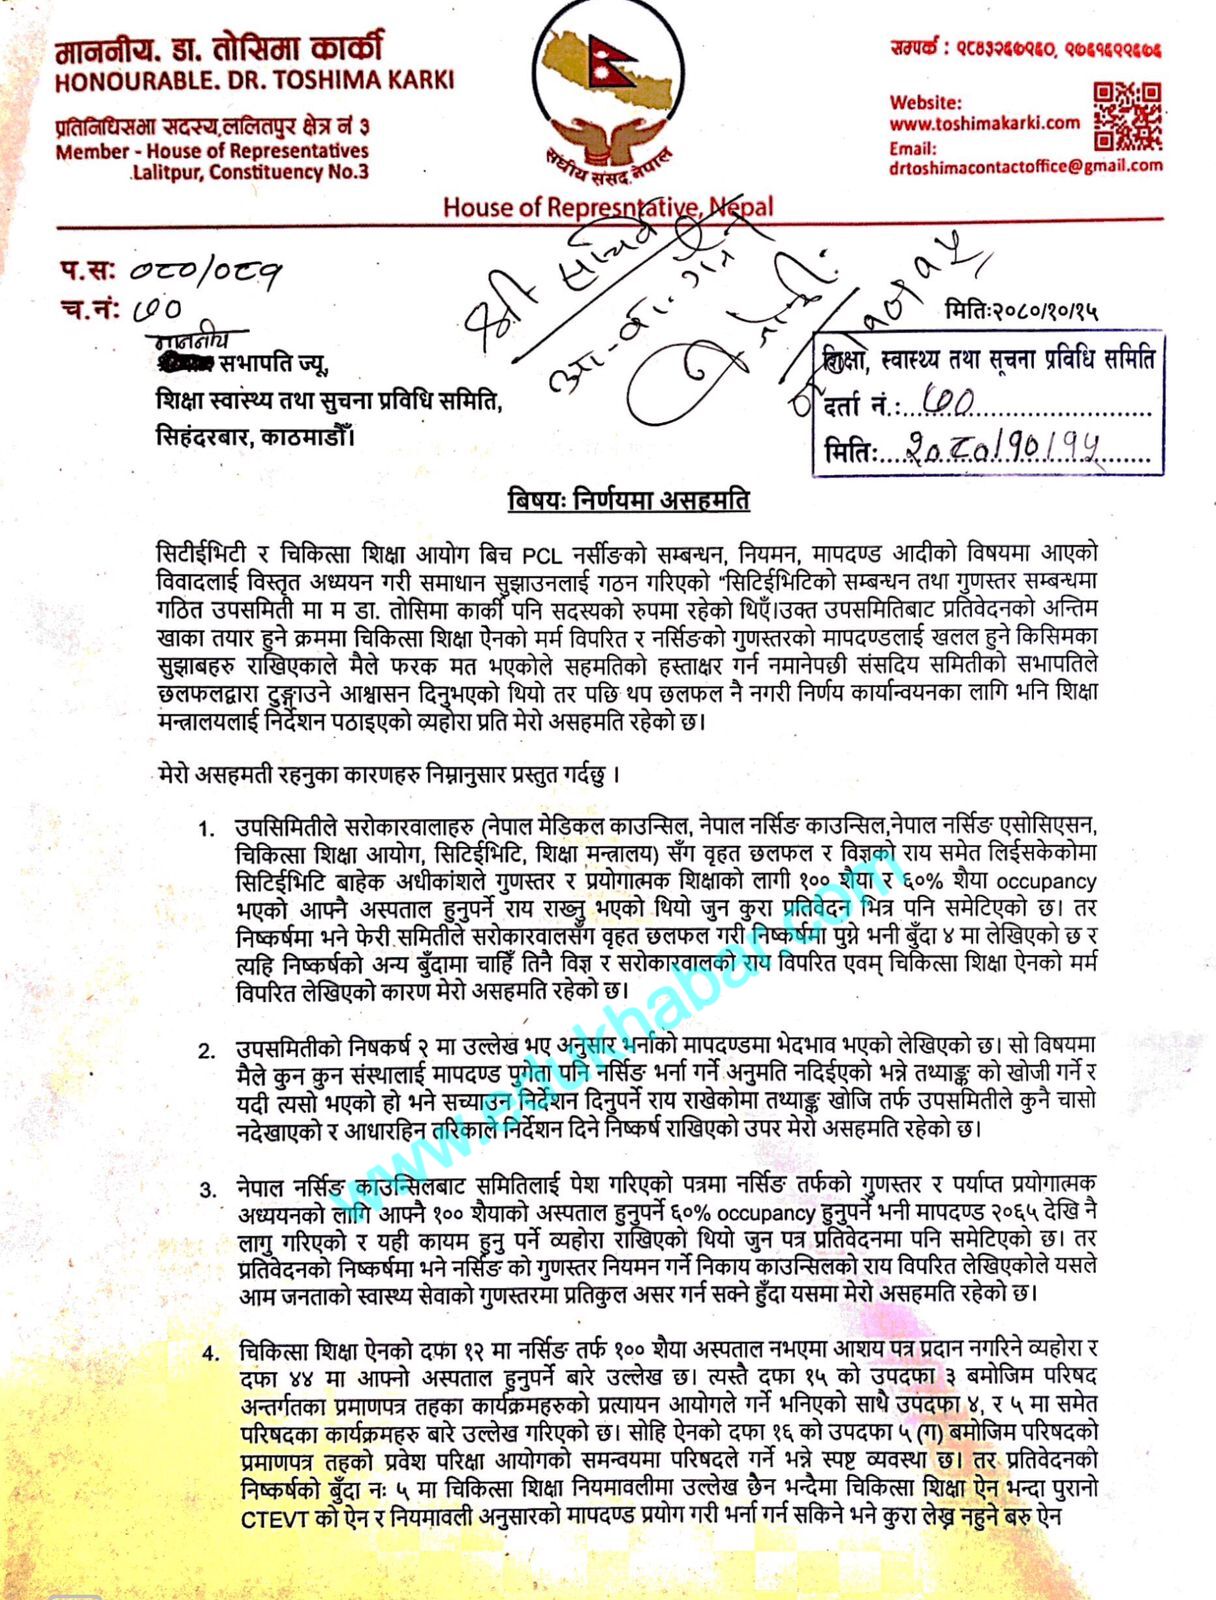 माननीय. डा. तोसिमा कार्की
HONOURABLE. DR. TOSHIMA KARKI
प्रतिनिधिसभा सदस्य,ललितपुर क्षेत्र नं ३
Member - House of Representatives
Lalitpur, Constituency No.3
संघीय संसद, नेपाल
House of Represntative, Nepal
सम्पर्क : ९८४३२६७१६०, १७६१६११६७६
Website:
www.toshimakarki.com
Email:
drtoshimacontactoffice@gmail.com
प.स: ०८०/०८१
च.नं: ७०
श्री सचिव
मिति:२०८०/१०/१५
माननीय
सभापति ज्यू,
शिक्षा स्वास्थ्य तथा सुचना प्रविधि समिति,
सिहंदरबार, काठमाडौँ।
शिक्षा, स्वास्थ्य तथा सूचना प्रविधि समिति
दर्ता नं.:.....७०.....
मिति:....२०८०/१०/१५.....
बिषयः निर्णयमा असहमति
सिटीईभिटी र चिकित्सा शिक्षा आयोग बिच PCL नर्सीङको सम्बन्धन, नियमन, मापदण्ड आदीको विषयमा आएको
विवादलाई विस्तृत अध्ययन गरी समाधान सुझाउनलाई गठन गरिएको "सिटिईभिटिको सम्बन्धन तथा गुणस्तर सम्बन्धमा
गठित उपसमिती मा म डा. तोसिमा कार्की पनि सदस्यको रुपमा रहेको थिएँ।उक्त उपसमितिबाट प्रतिवेदनको अन्तिम
खाका तयार हुने क्रममा चिकित्सा शिक्षा ऐनको मर्म विपरित र नर्सिङको गुणस्तरको मापदण्डलाई खलल हुने किसिमका
सुझाबहरु राखिएकाले मैले फरक मत भएकोले सहमतिको हस्ताक्षर गर्न नमानेपछी संसदिय समितीको सभापतिले
छलफलद्वारा टुङ्गाउने आश्वासन दिनुभएको थियो तर पछि थप छलफल नै नगरी निर्णय कार्यान्वयनका लागि भनि शिक्षा
मन्त्रालयलाई निर्देशन पठाइएको व्यहोरा प्रति मेरो असहमति रहेको छ।
मेरो असहमती रहनुका कारणहरु निम्नानुसार प्रस्तुत गर्दछु ।
1. उपसिमितीले सरोकारवालाहरु (नेपाल मेडिकल काउन्सिल, नेपाल नर्सिङ काउन्सिल,नेपाल नर्सिङ एसोसिएसन,
चिकित्सा शिक्षा आयोग, सिटिईभिटि, शिक्षा मन्त्रालय) सँग वृहत छलफल र विज्ञको राय समेत लिईसकेकोमा
सिटिईभिटि बाहेक अधीकांशले गुणस्तर र प्रयोगात्मक शिक्षाको लागी १०० शैया र ६०% शैया occupancy
भएको आफ्नै अस्पताल हुनुपर्ने राय राख्नु भएको थियो जुन कुरा प्रतिवेदन भित्र पनि समेटिएको छ। तर
निष्कर्षमा भने फेरी समितीले सरोकारवालसँग वृहत छलफल गरी निष्कर्षमा पुग्ने भनी बुँदा ४ मा लेखिएको छ र
त्यहि निष्कर्षको अन्य बुँदामा चाहिँ तिनै विज्ञ र सरोकारवालको राय विपरित एवम् चिकित्सा शिक्षा ऐनको मर्म
विपरित लेखिएको कारण मेरो असहमति रहेको छ।
2. उपसमितीको निषकर्ष २ मा उल्लेख भए अनुसार भर्नाको मापदण्डमा भेदभाव भएको लेखिएको छ। सो विषयमा
मैले कुन कुन संस्थालाई मापदण्ड पुगेता पनि नर्सिङ भर्ना गर्ने अनुमति नदिईएको भन्ने तथ्याङ्क को खोजी गर्ने र
यदी त्यसो भएको हो भने सच्याउन निर्देशन दिनुपर्ने राय राखेकोमा तथ्याङ्क खोजि तर्फ उपसमितीले कुनै चासो
नदेखाएको र आधारहिन तरिकाले निर्देशन दिने निष्कर्ष राखिएको उपर मेरो असहमति रहेको छ।
3. नेपाल नर्सिङ काउन्सिलबाट समितिलाई पेश गरिएको पत्रमा नर्सिङ तर्फको गुणस्तर र पर्याप्त प्रयोगात्मक
अध्ययनको लागि आफ्नै १०० शैयाको अस्पताल हुनुपर्ने ६०% occupancy हुनुपर्ने भनी मापदण्ड २०६५ देखि नै
लागु गरिएको र यही कायम हुनु पर्ने व्यहोरा राखिएको थियो जुन पत्र प्रतिवेदनमा पनि समेटिएको छ। तर
प्रतिवेदनको निष्कर्षमा भने नर्सिङ को गुणस्तर नियमन गर्ने निकाय काउन्सिलको राय विपरित लेखिएकोले यसले
आम जनताको स्वास्थ्य सेवाको गुणस्तरमा प्रतिकुल असर गर्न सक्ने हुँदा यसमा मेरो असहमति रहेको छ।
4. चिकित्सा शिक्षा ऐनको दफा १२ मा नर्सिङ तर्फ १०० शैया अस्पताल नभएमा आशय पत्र प्रदान नगरिने व्यहोरा र
दफा ४४ मा आफ्नो अस्पताल हुनुपर्ने बारे उल्लेख छ। त्यस्तै दफा १५ को उपदफा ३ बमोजिम परिषद
अन्तर्गतका प्रमाणपत्र तहका कार्यक्रमहरुको प्रत्यायन आयोगले गर्ने भनिएको साथै उपदफा ४, र ५ मा समेत
परिषदका कार्यक्रमहरु बारे उल्लेख गरिएको छ। सोहि ऐनको दफा १६ को उपदफा ५ (ग) बमोजिम परिषदको
प्रमाणपत्र तहको प्रवेश परिक्षा आयोगको समन्वयमा परिषदले गर्ने भन्ने स्पष्ट व्यवस्था छ। तर प्रतिवेदनको
निष्कर्षको बुँदा नः ५ मा चिकित्सा शिक्षा नियमावलीमा उल्लेख छैन भन्दैमा चिकित्सा शिक्षा ऐन भन्दा पुरानो
CTEVT को ऐन र नियमावली अनुसारको मापदण्ड प्रयोग गरी भर्ना गर्न सकिने भने कुरा लेख्न नहुने बरु ऐन
www.edukhabar.com